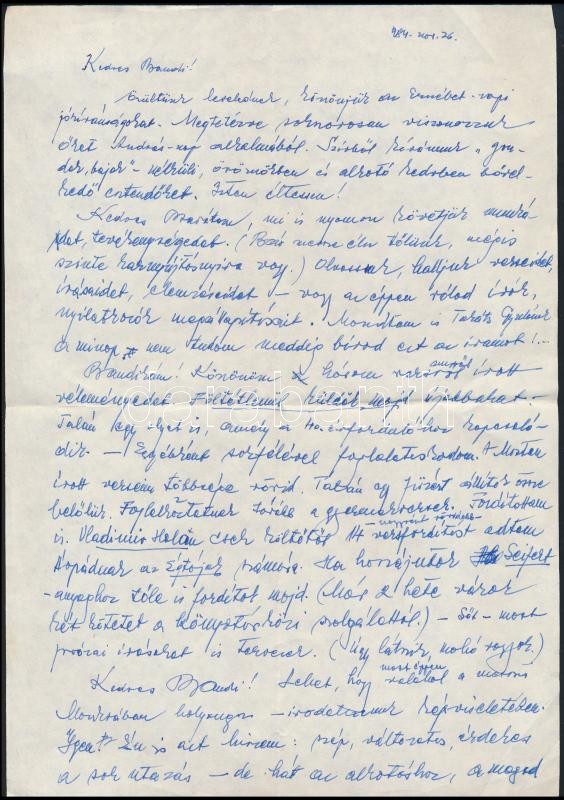 984. nov. 26.
Kedves Bandi!
örültünk levelednek, köszönjük az Erzsébet-napi
jókívánságokat. Megkésve sokszorosan viszonozzuk
őket András-nap alkalmából. Szívből kívánunk "gon-
dok, bajok"-nélküli, örömökben és alkotó kedvben bővel-
kedő esztendőket. Isten éltessen!
Kedves Barátom, mi is nyomon követjük munká-
dat, tevékenységedet. ( élsz tőlünk, mégis
szinte karnyújtásnyira vagy.) Olvassuk, halljuk verseidet,
írásaidet, elemzéseidet – vagy az éppen rólad írók,
nyilatkozók megállapításait. Mondtam is Takáts Gyulának
a minap, nem tudom meddig bírod ezt az iramot!..
Bandikám! Köszönöm a három városról írott
véleményedet. Föltétlenül küldök majd újabbakat.
Talán egy olyat is, amely a 40. évfordulóhoz kapcsoló-
dik. – Egyébként sokfélével foglalatoskodom. A Mostan
írott verseim többsége rövid. Talán egy füzért állítok össze
belőlük. Foglalkoztatnak továbbá a gyermekversek. Fordítottam
is. Vladimír Holan cseh költőtől 14 versfordítást adtam
– nagyrészt
az Élőfej számára. Ha hozzájutok Seifert
-anyaghoz tőle is fordítok majd. (Már 2 hete várok
két kötetet a könyvtárközi szolgálattól.) – Sőt – most
prózai írásokat is tervezek. (Úgy látszik, mohó vagyok.)
Kedves Bandi! Lehet, hogy most éppen valahol a
Moszkvában – irodalmunk képviseletében.
Igen? Én is azt hiszem: szép, változatos, érdekes
a sok utazás – de hát az alkotáshoz, a magad
darabanth